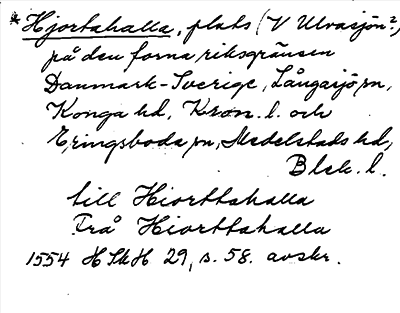 * Hjortahalla, plats (V Ulvasjön?)
på den forna riksgränsen
Danmark-Sverige, Långasjö sn,
Konga hd, Kron. l. och
Eringsboda sn, Medelstads hd,
Blek. l.
till Hiorttahalla
Frå Hiorttahalla
1554 HSkH 29, s. 58. avskr.